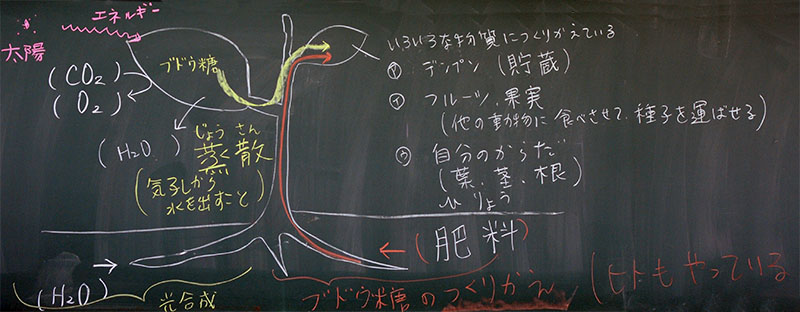 エネルギー
太陽
ブドウ糖
(CO2)
(O2)
(H2O)
じょうさん
蒸散
(気孔から
水を出すこと)
(H2O)
光合成
いろいろな物質につくりかえている
㋐ デンプン (貯蔵)
㋑ フルーツ、果実
(他の動物に食べさせて、種子を運ばせる)
㋒ 自分のからだ
(葉、茎、根)
ひりょう
(肥料)
ブドウ糖のつくりかえ
(ヒトもやっている